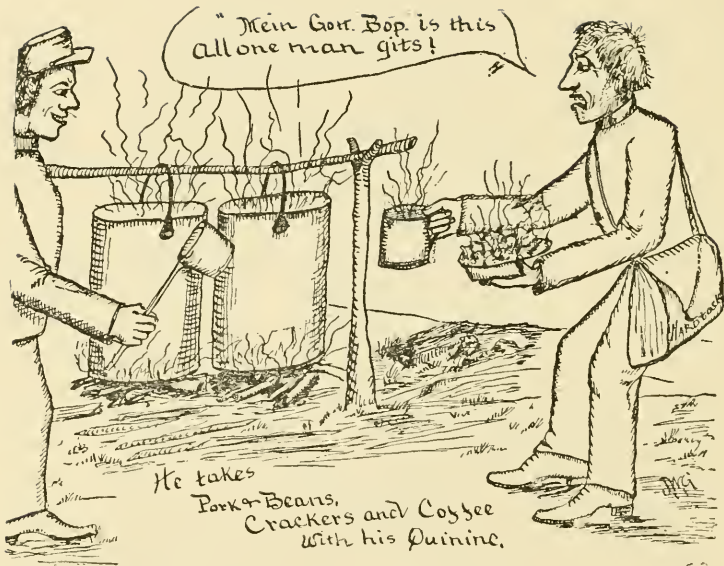 "Mein Gott. Bop. is this
all one man gits!
HARDtack
He takes
Pork & Beans,
Crackers and Coffee
with his Quinine.